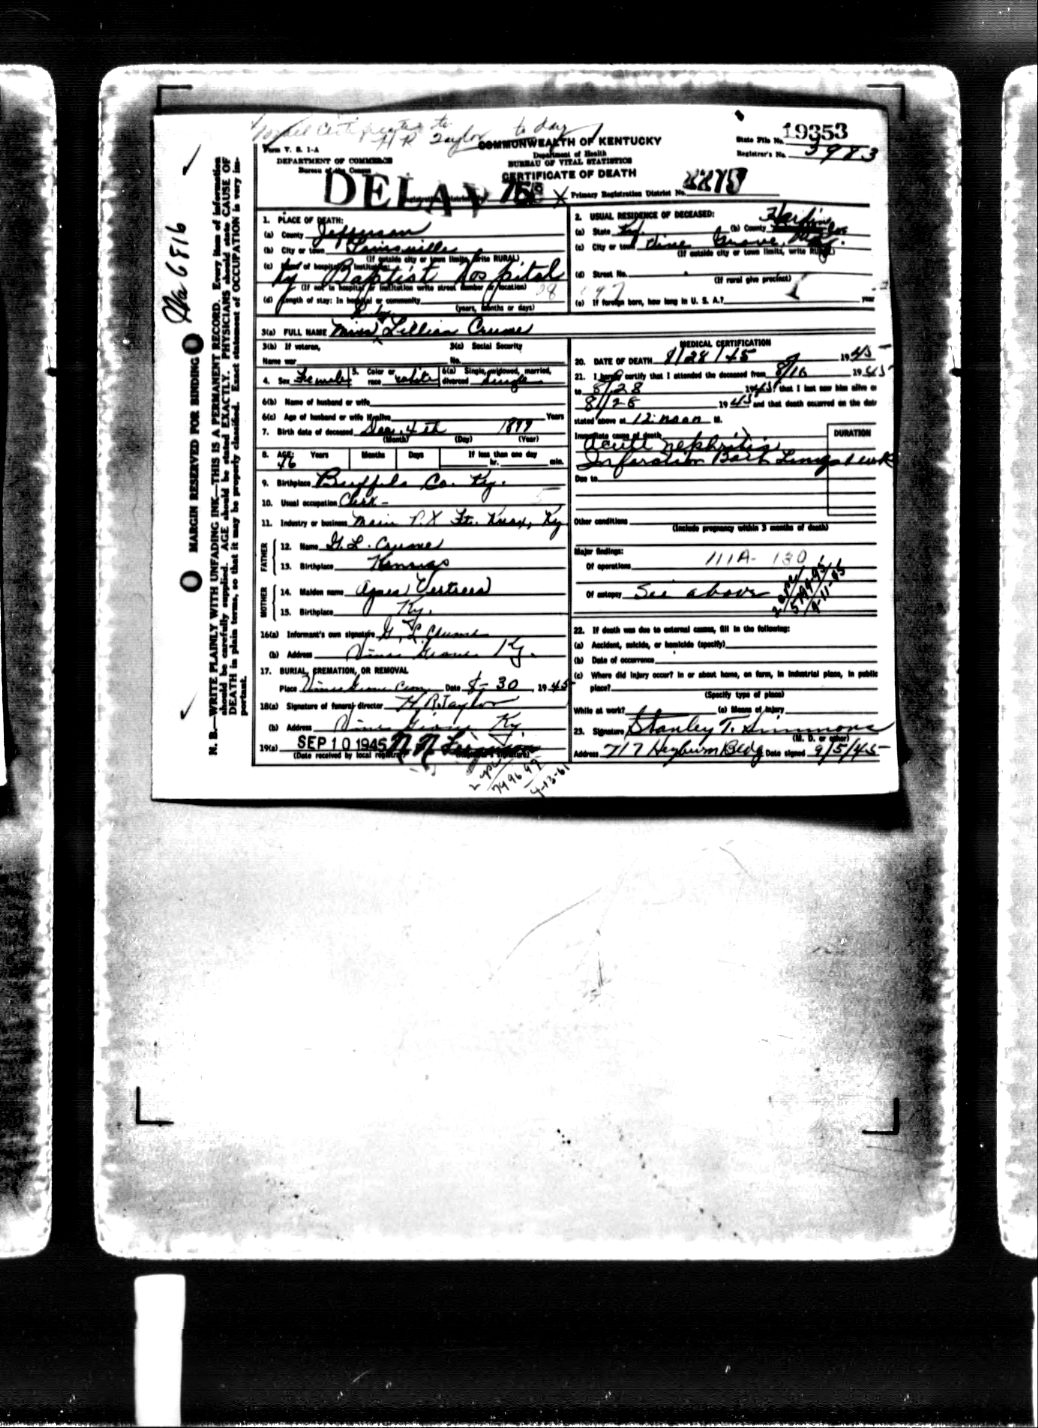 to day
H R Taylor
Form V. S. 1-A
DEPARTMENT OF COMMERCE
Bureau of the Census
COMMONWEALTH OF KENTUCKY
Department of Health
BUREAU OF VITAL STATISTICS
CERTIFICATE OF DEATH
State File No. 19353
Registrar's No. 3983
DELAY
Primary Registration District No.
Wa 6816
MARGIN RESERVED FOR BINDING
N. B.—WRITE PLAINLY WITH UNFADING INK—THIS IS A PERMANENT RECORD. Every item of information
should be carefully supplied. AGE should be stated EXACTLY. PHYSICIANS should state CAUSE OF
DEATH in plain terms, so that it may be properly classified. Exact statement of OCCUPATION is very im-
portant.
1. PLACE OF DEATH:
(a) County Jefferson
(b) City or town Louisville
(If outside city or town limits, write RURAL)
(c) Name of hospital or institution:
Ky Baptist Hospital
(If not in hospital or institution write street number or location)
(d) Length of stay: In hospital or community
(years, months or days)
2. USUAL RESIDENCE OF DECEASED:
(a) State Ky. (b) County Hardin
(c) City or town Vine Grove, Ky.
(If outside city or town limits, write RURAL)
(d) Street No.
(If rural give precinct)
(e) If foreign born, how long in U. S. A.? year
3(a) FULL NAME Miss Lillian Crume
3(b) If veteran,
Name war
3(c) Social Security
No.
4. Sex Female 5. Color or race white 6(a) Single, widowed, married, divorced Single
6(b) Name of husband or wife
6(c) Age of husband or wife if alive Years
7. Birth date of deceased Dec. 4th 1899
(Month) (Day) (Year)
8. AGE: Years Months Days If less than one day
46 hr. min.
9. Birthplace Co. Ky.
10. Usual occupation Clerk
11. Industry or business Main P.X Ft. Knox, Ky
FATHER
12. Name G. L. Crume
13. Birthplace Kansas
MOTHER
14. Maiden name Agnes Vertrees
15. Birthplace Ky.
16(a) Informant's own signature G. L. Crume
(b) Address Vine Grove Ky.
17. BURIAL, CREMATION, OR REMOVAL
Place Vine Grove Cem Date 8-30 1945
18(a) Signature of funeral director H. R. Taylor
(b) Address Vine Grove Ky.
19(a) SEP 10 1945
(Date received by local registrar)
MEDICAL CERTIFICATION
20. DATE OF DEATH 8/28/45 1945
21. I hereby certify that I attended the deceased from 8/16 1945
to 8/28 1945 that I last saw him alive on
8/28 1945 and that death occurred on the date
stated above at 12 noon M.
Immediate cause of death
DURATION
Acute nephritis
Infarction Both Lungs
Due to
Other conditions
(Include pregnancy within 3 months of death)
Major findings:
Of operations 111A- 130
Of autopsy See above
22. If death was due to external causes, fill in the following:
(a) Accident, suicide, or homicide (specify)
(b) Date of occurrence
(c) Where did injury occur? In or about home, on farm, in industrial place, in public
place?
(Specify type of place)
While at work? (e) Means of injury
23. Signature Stanley T. Simmons
(M. D. or other)
Address 717 Heyburn Bldg Date signed 9/5/45